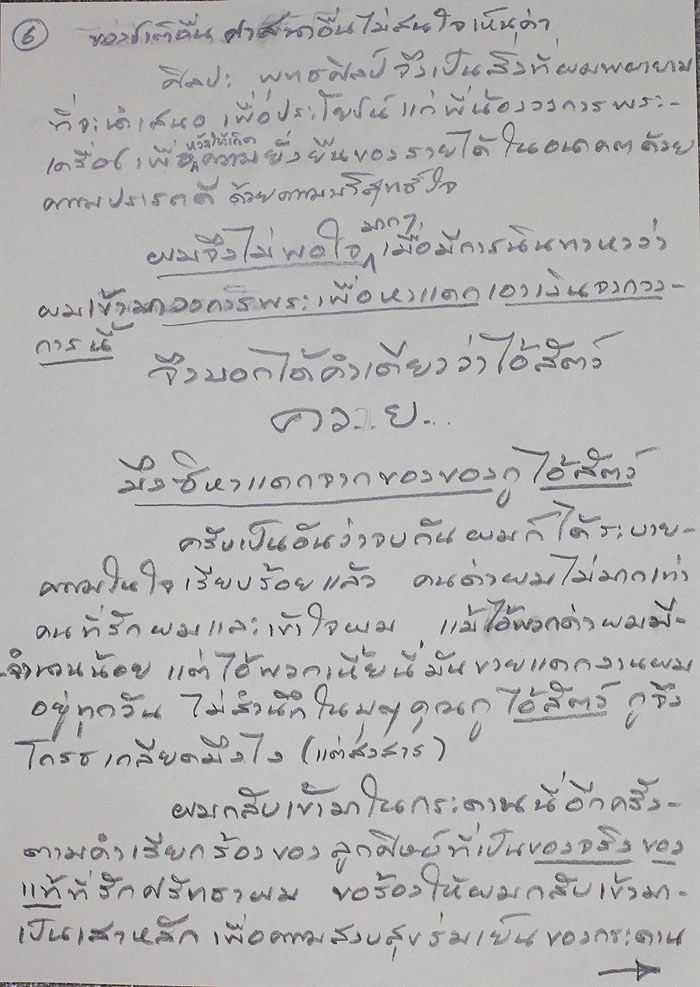 6 ของชาติอื่น ศาสนาอื่นไม่สนใจเห็นค่า
ศิลปะ พุทธศิลป์จึงเป็นสิ่งที่ผมพยายาม
ที่จะนำเสนอ เพื่อประโยชน์แก่พี่น้องวงการพระ-
เครื่อง เพื่อหวังให้เกิดความยั่งยืนของรายได้ในอนาคตด้วย
ความปรารถดี ด้วยความบริสุทธิ์ใจ
ผมจึงไม่พอใจมากๆ เมื่อมีการนินทาหาว่า
ผมเข้ามาวงการพระเพื่อหาแดกเอาเงินจากวง-
การนี้
จึงบอกได้คำเดียวว่าไอ้สัตว์
คว...ย...
มึงซิหาแดกจากของของกู ไอ้สัตว์
ครับเป็นอันว่าจบกันผมก็ได้ระบาย-
ความในใจเรียบร้อยแล้ว คนด่าผมไม่มากเท่า
คนที่รักผมและเข้าใจผม แม้ไอ้พวกด่าผมมี-
จำนวนน้อย แต่ไอ้พวกเหี้ยนี่มันขายแดกงานผม
อยู่ทุกวัน ไม่สำนึกในบุญคุณกู ไอ้สัตว์ กูจึง
โกรธเกลียดมึงไง (แต่สงสาร)
ผมกลับเข้ามาในกระดานนี้อีกครั้ง-
ตามคำเรียกร้องของลูกศิษย์ที่เป็นของจริงของ
แท้ที่รักศรัทธาผม ขอร้องให้ผมกลับเข้ามา-
เป็นเสาหลัก เพื่อความสงบสุขร่มเย็นของกระดาน
→